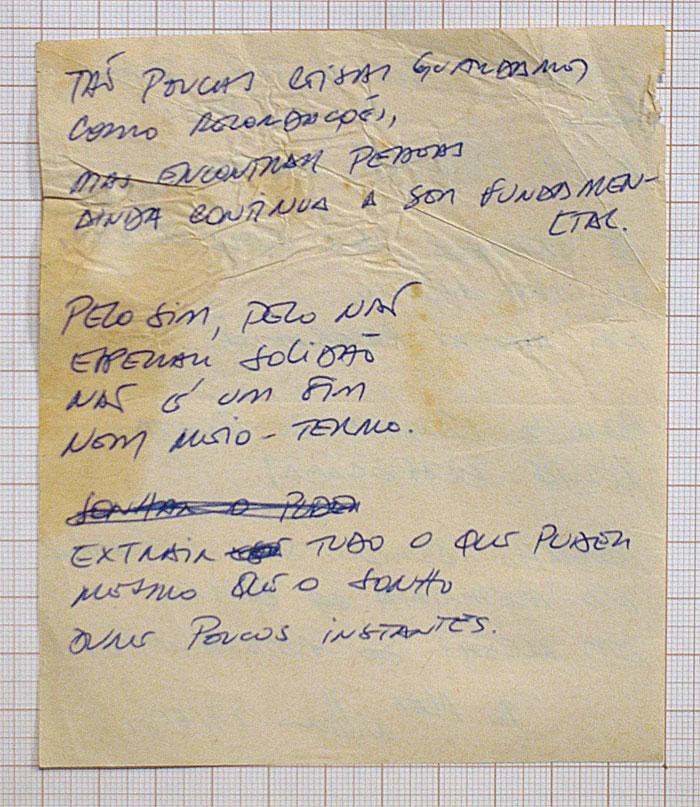 TÃO POUCAS COISAS GUARDAMOS
COMO RECORDAÇÕES,
MAS ENCONTRAR PESSOAS
AINDA CONTINUA A SER FUNDAMEN-
TAL.
PELO SIM, PELO NÃO
ESPERAR SOLIDÃO
NÃO É UM SIM
NEM MEIO-TERMO.
SONHAR O PUDER
EXTRAIR TUDO O QUE PUDER
MESMO QUE O SONHO
DURE POUCOS INSTANTES.